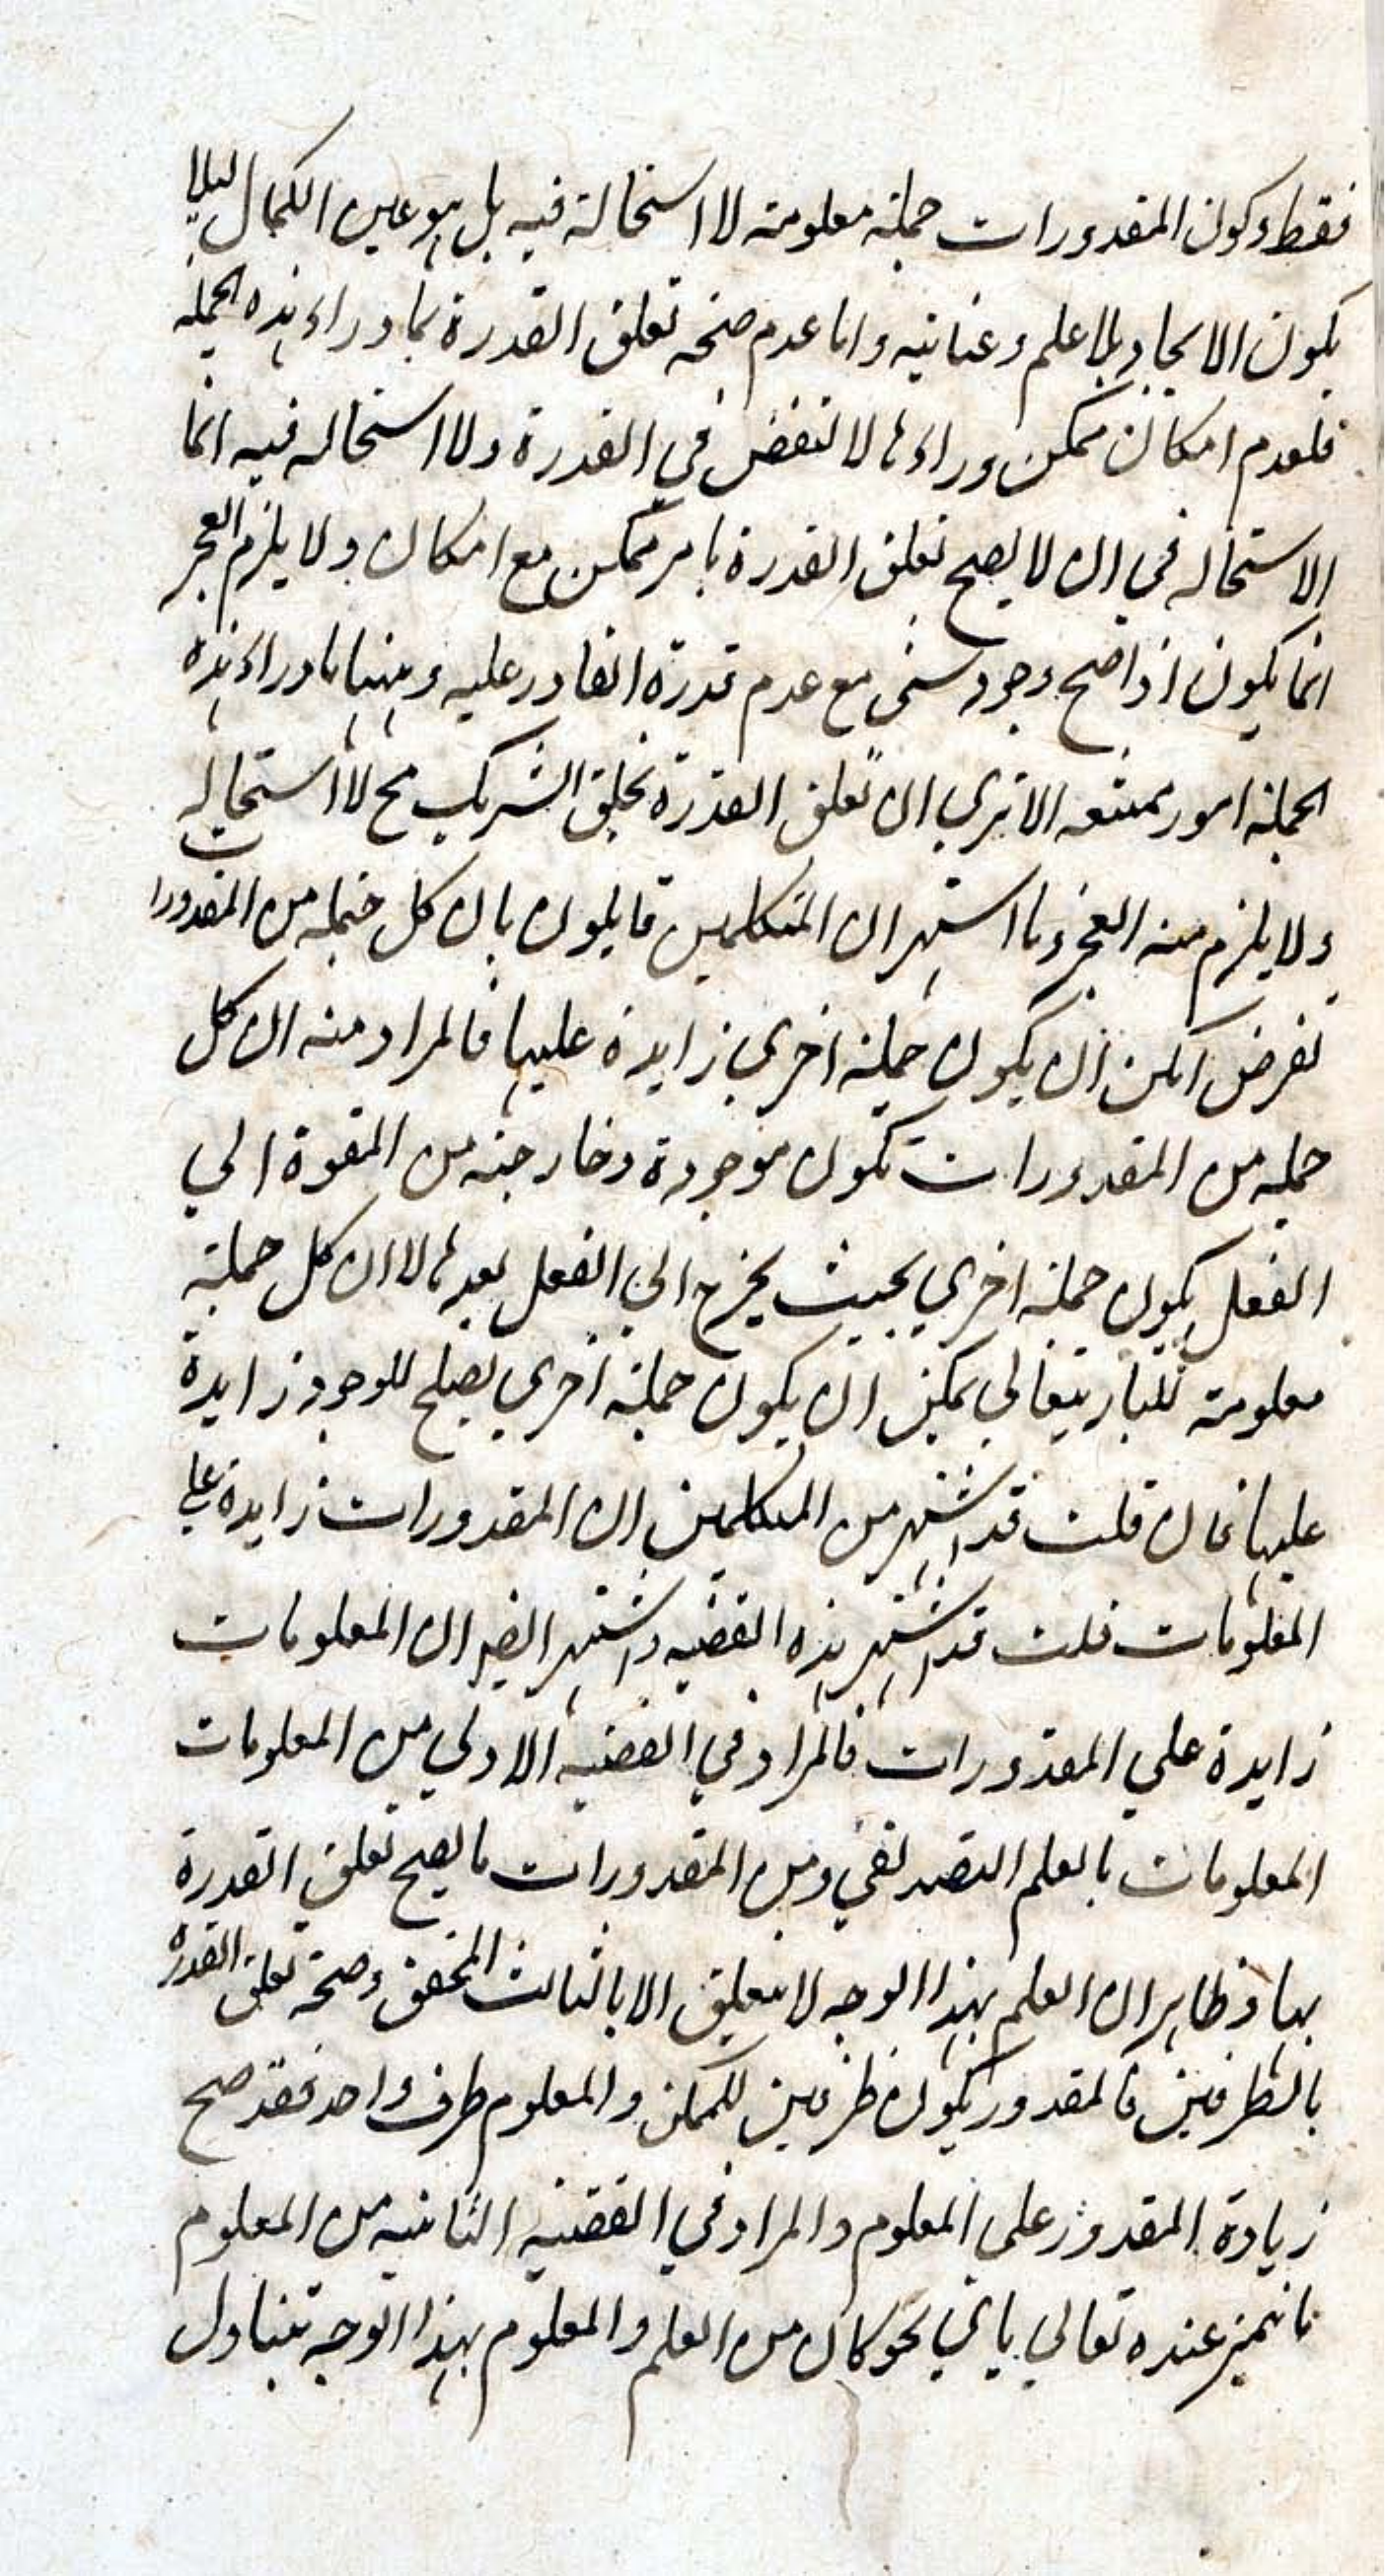 فقط وكون المقدورات جملة معلومة لا استحالة فيه بل هو عين الكمال ليلا
يكون الايجاد بلا علم وعناية واما عدم صحة تعلق القدرة بما وراء هذه الجملة
فلعدم امكان ممكن وراءها لا لنقض في القدرة ولا استحاله فيه انما
الاستحاله في ان لا يصح تعلق القدرة بامر ممكن مع امكان ولا يلزم العجز
انما يكون اذا صح وجود شى مع عدم قدرة القادر عليه وههنا ما وراء هذه
الجملة امور ممتنعه الا ترى ان تعلق القدرة بخلق الشريك مح لا استحاله
ولا يلزم منه العجز وما اشتهر ان المتكلمين قايلون بان كل جملة من المقدورات
تفرض امكن ان يكون جملة اخرى زايدة عليها فالمراد منه ان كل
جملة من المقدورات تكون موجودة وخارجة من القوة الي
الفعل يكون جملة اخري بحيث يخرج الي الفعل بعدها لا ان كل جملة
معلومة للباريتعالي يمكن ان يكون جملة اخري يصلح للوجود زايدة
عليها فان قلت قد اشتهر من المتكلمين ان المقدورات زايدة علي
المعلومات قلت قد اشتهر هذه القضيه واشتهر ايضا ان المعلومات
زايدة علي المقدورات فالمراد في القضيه الاولي من المعلومات
المعلومات بالعلم التصديقي ومن المقدورات ما يصح تعلق القدرة
بها وظاهر ان العلم بهذا الوجه لا يتعلق الا بالثالث المحقق وصحة تعلق القدرة
بالطرفين فالمقدور يكون طرفين للممكن والمعلوم طرف واحد فقد صح
زيادة المقدور علي المعلوم والمراد في القضيه الثانيه من المعلوم
ما تميز عنده تعالي باي نحو كان من العلم والمعلوم بهذا الوجه تناول